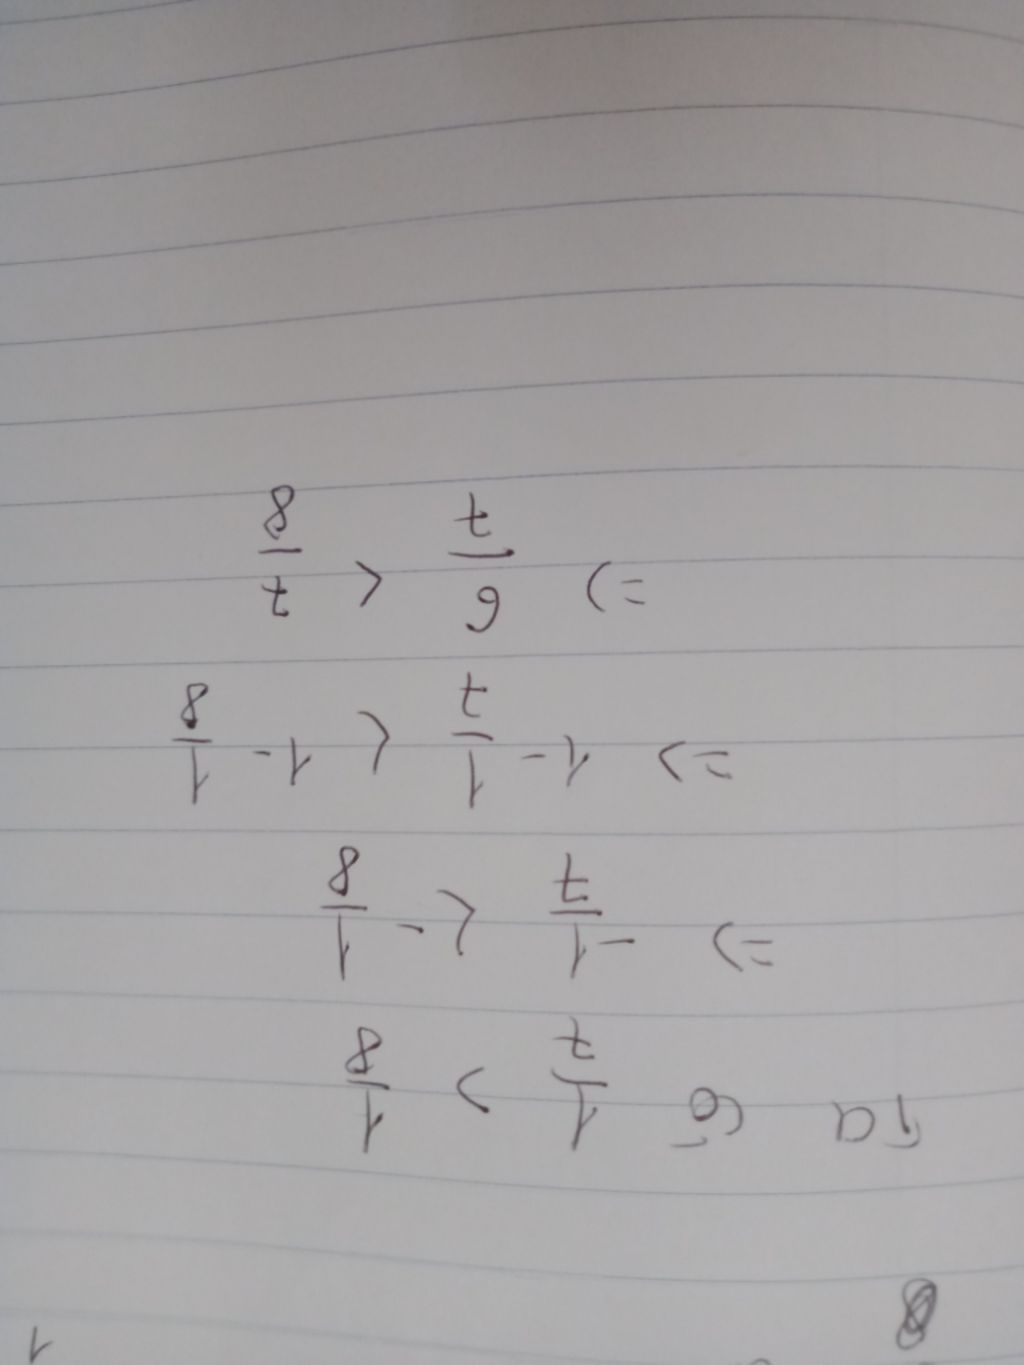 8 1
Ta có 1/7 > 1/8
=> -1/7 < -1/8
=> 1 - 1/7 < 1 - 1/8
=> 6/7 < 7/8